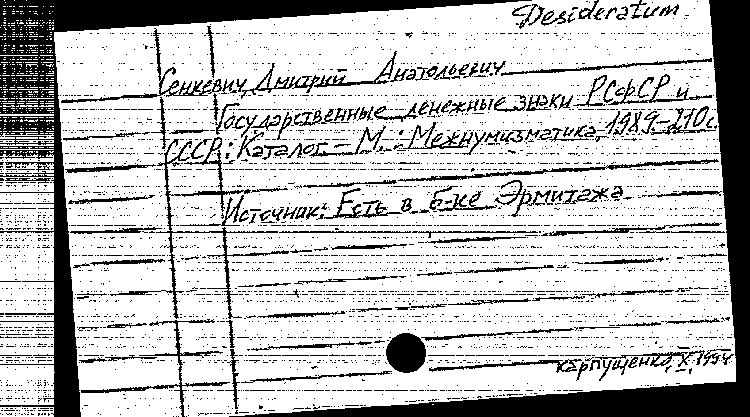 Desideratum
Сенкевич, Дмитрий Анатольевич
Государственные денежные знаки РСФСР и
СССР: Каталог. – М.: Межнумизматика, 1989. – 210 с.
Источник: Есть в б-ке Эрмитажа
Карпущенко, X, 1994